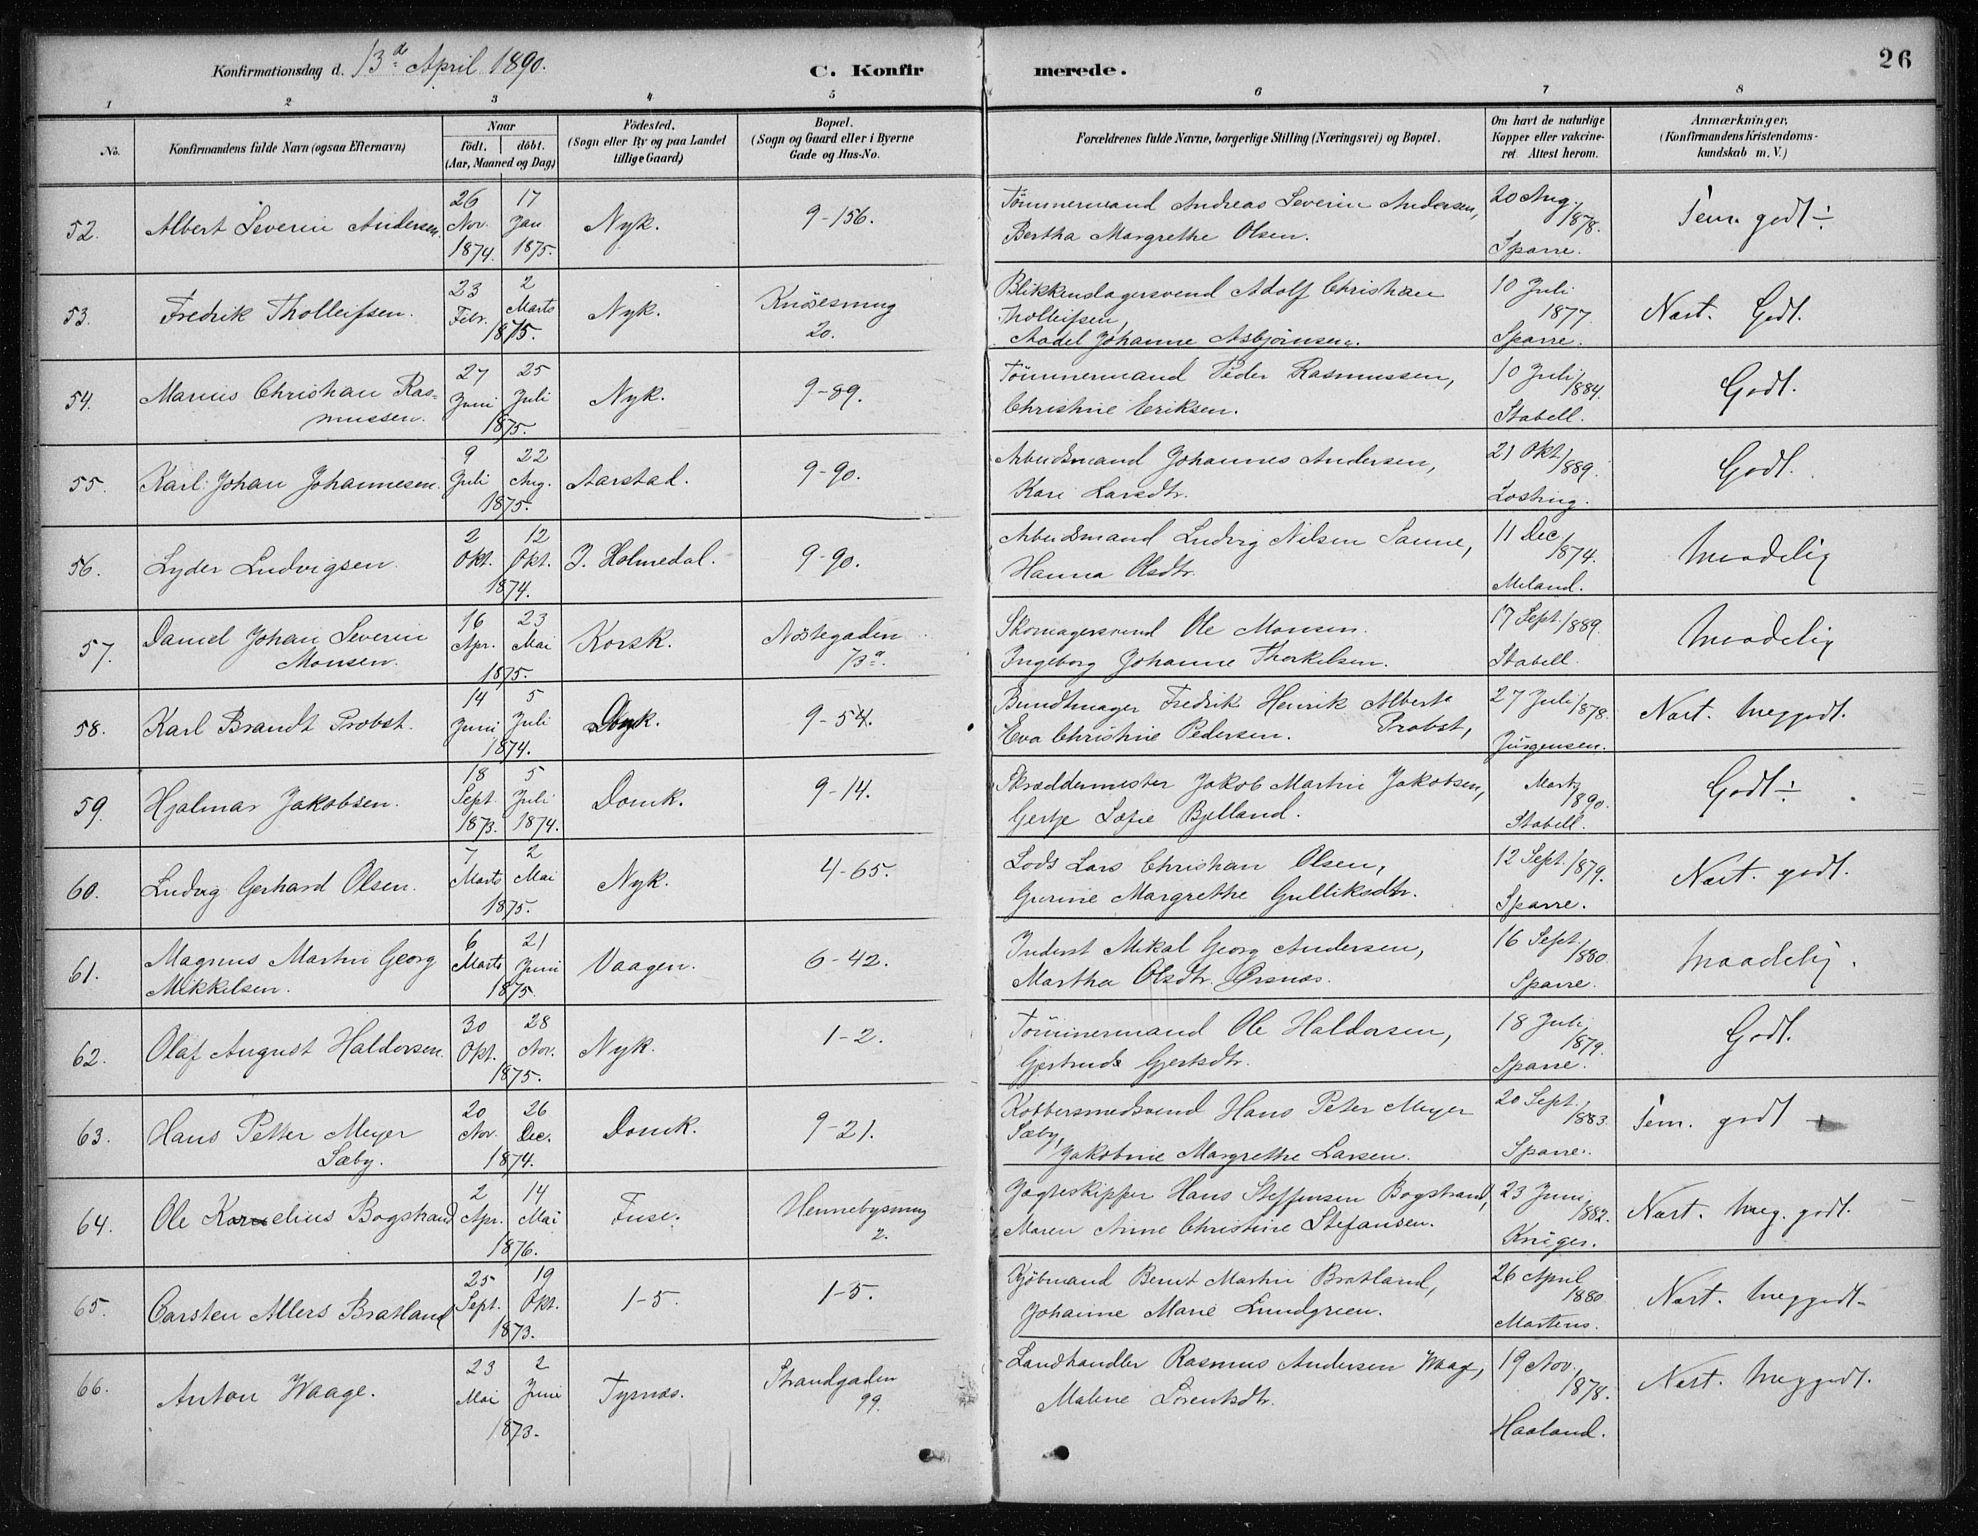 26
Konfirmationsdag d. 13de April 1890.
C. Konfirmerede.
1 2 3 4 5 6 7 8
No.
Konfirmandens fulde Navn (ogsaa Efternavn)
Naar
født. døbt.
(Aar, Maaned og Dag)
Födested.
(Sogn eller By og paa Landet
tillige Gaard)
Bopæl.
(Sogn og Gaard eller i Byerne
Gade og Hus-No.
Forældrenes fulde Navne, borgerlige Stilling (Næringsvei) og Bopæl.
Om havt de naturlige
Kopper eller vakcine-
ret. Attest herom.
Anmærkninger.
(Konfirmandens Kristendoms-
kundskab m. V.)
52. Albert Severin Andersen. 26 Nov. 1874. 17 Jan 1875. Nyk. 9-156.
Tömmermand Andreas Severin Andersen,
Bertha Margrethe Olsen.
20 Aug. 1878. Sparre. Tem. godt ÷
53. Fredrik Tholleifsen. 23 Febr. 2 Marts 1875. Nyk. Knösesmug 20.
Blikkenslagersvend Adolf Christian
Tholleifsen,
Aadel Johanne Asbjörnsen.
10 Juli 1877. Sparre. Nært. Godt.
54. Marius Christian Ras=
mussen. 27 Juni 25 Juli 1875. Nyk. 9-89.
Tömmermand Peder Rasmussen,
Christine Eriksen.
10 Juli 1884. Stabell. Godt.
55. Karl Johan Johannesen. 9 Juli 22 Aug. 1875. Aarstad. 9-90.
Arbeidsmand Johannes Andersen,
Kari Larsdtr.
21 Okt. 1889. Godt.
56. Lyder Ludvigsen. 2 Okt. 12 Okt. 1874. I. Holmedal. 9-90.
Arbeidsmand Ludvig Nilsen Sanne,
Hanna Olsdtr.
11 Dec. 1874. Meland. Maadelig
57. Daniel Johan Severin
Monsen. 16 Apr. 23 Mai 1875. Korsk. Nöstegaden 13a.
Skomagersvend Ole Monsen.
Ingeborg Johanne Thorkelsen.
17 Sept. 1889. Stabell. Maadelig
58. Karl Brandt Probst. 14 Juni 5 Juli 1874. 9-54.
Bundtmager Fredrik Henrik Albert
Probst,
Eva Christine Pedersen.
27 Juli 1878. Jürgensen. Nært. meggodt.
59. Hjalmar Jakobsen. 18 Sept. 1873. 5 Juli 1874. Domk. 9-14.
Skræddermester Jakob Martin Jakobsen,
Gertje Sofie Bjelland.
Marts 1890. Stabell. Godt ÷
60. Ludvig Gerhard Olsen. 7 Marts 2 Mai 1875. Nyk. 4-65.
Lods Lars Christian Olsen,
Gurine Margrethe Gulliksdtr.
12 Sept. 1879. Sparre. Nært. godt.
61. Magnus Martin Georg
Mikkelsen. 6 Marts 21 Juni 1875. Vaagen. 6-42.
Inderst Mikal Georg Andersen,
Martha Olsdtr. Örsnæs.
16 Sept. 1880. Sparre. Maadelig.
62. Olaf August Haldorsen. 30 Okt. 28 Nov. 1875. Nyk. 1-2.
Tömmermand Ole Haldorsen,
Gjertrude Gjertsdtr.
18 Juli 1879. Sparre. Godt.
63. Hans Petter Meyer
Sæby. 20 Nov. 26 Dec. 1874. Domk. 9-21.
Kobbersmedsvend Hans Peter Meyer
Sæby,
Jakobine Margrethe Larsen.
20 Sept. 1883. Sparre. Tem. godt
64. Ole Kornelius Bogstrand 2 Apr. 14 Mai 1876. Fuse. Hennebysmug 2.
Jagteskipper Hans Steffensen Bogstrand,
Maren Anne Christine Stefansen.
23 Juni 1882. Krüger. Nært. meg. godt.
65. Carsten Allers Bratland 25 Sept. 19 Okt. 1873. 1-5. 1-5.
Kjöbmand Bernt Martin Bratland,
Johanne Marie Lundgreen.
26 April 1880. Martens. Nært. meggodt.
66. Anton Waage. 23 Mai 2 Juni 1873. Tysnæs. Strandgaden 99.
Landhandler Rasmus Andersen Waage,
Malene Lorentsdtr.
19 Nov. 1878. Haaland. Nært. meggodt.